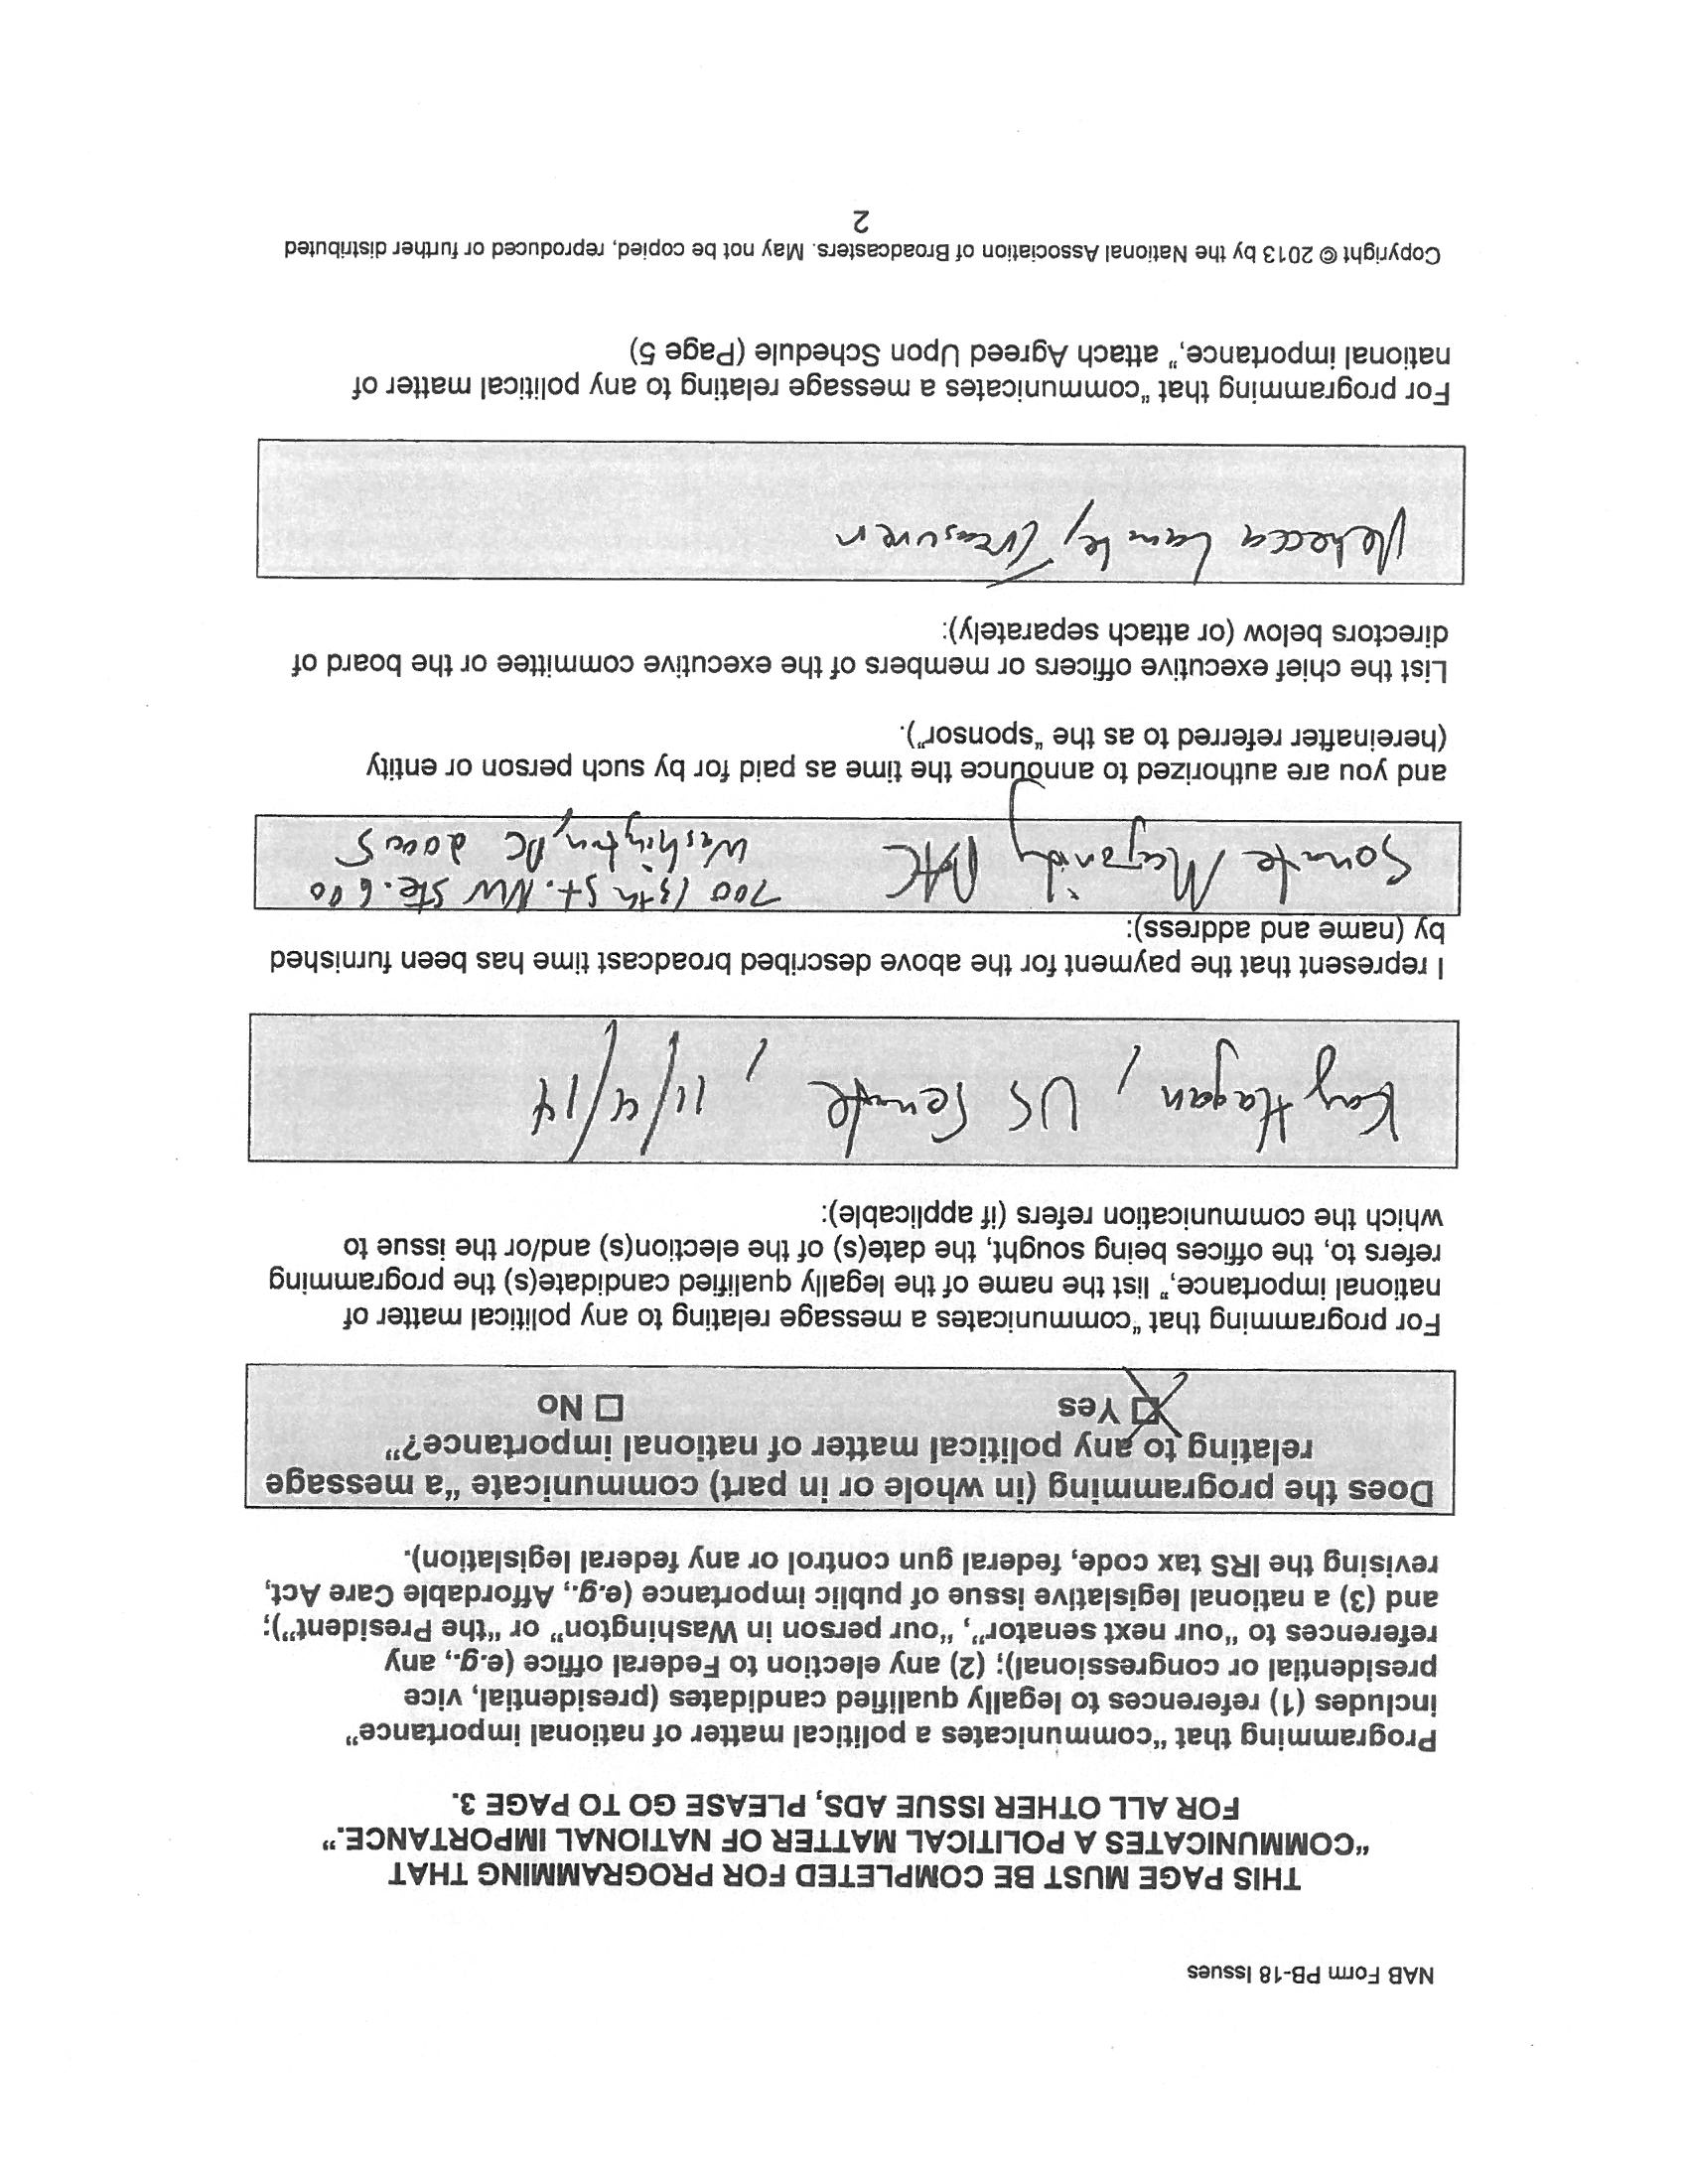 NAB Form PB-18 Issues
THIS PAGE MUST BE COMPLETED FOR PROGRAMMING THAT
"COMMUNICATES A POLITICAL MATTER OF NATIONAL IMPORTANCE."
FOR ALL OTHER ISSUE ADS, PLEASE GO TO PAGE 3.
Programming that "communicates a political matter of national importance"
includes (1) references to legally qualified candidates (presidential, vice
presidential or congressional); (2) any election to Federal office (e.g., any
references to "our next senator", "our person in Washington" or "the President");
and (3) a national legislative issue of public importance (e.g., Affordable Care Act,
revising the IRS tax code, federal gun control or any federal legislation).
Does the programming (in whole or in part) communicate "a message
relating to any political matter of national importance?"
☒ Yes ☐ No
For programming that "communicates a message relating to any political matter of
national importance," list the name of the legally qualified candidate(s) the programming
refers to, the offices being sought, the date(s) of the election(s) and/or the issue to
which the communication refers (if applicable):
Kay Hagan, US Senate, 11/4/14
I represent that the payment for the above described broadcast time has been furnished
by (name and address):
Senate Majority PAC 700 13th St. NW Ste. 600
Washington, DC 20005
and you are authorized to announce the time as paid for by such person or entity
(hereinafter referred to as the "sponsor").
List the chief executive officers or members of the executive committee or the board of
directors below (or attach separately):
Rebecca Lambe, Treasurer
For programming that "communicates a message relating to any political matter of
national importance," attach Agreed Upon Schedule (Page 5)
Copyright © 2013 by the National Association of Broadcasters. May not be copied, reproduced or further distributed
2